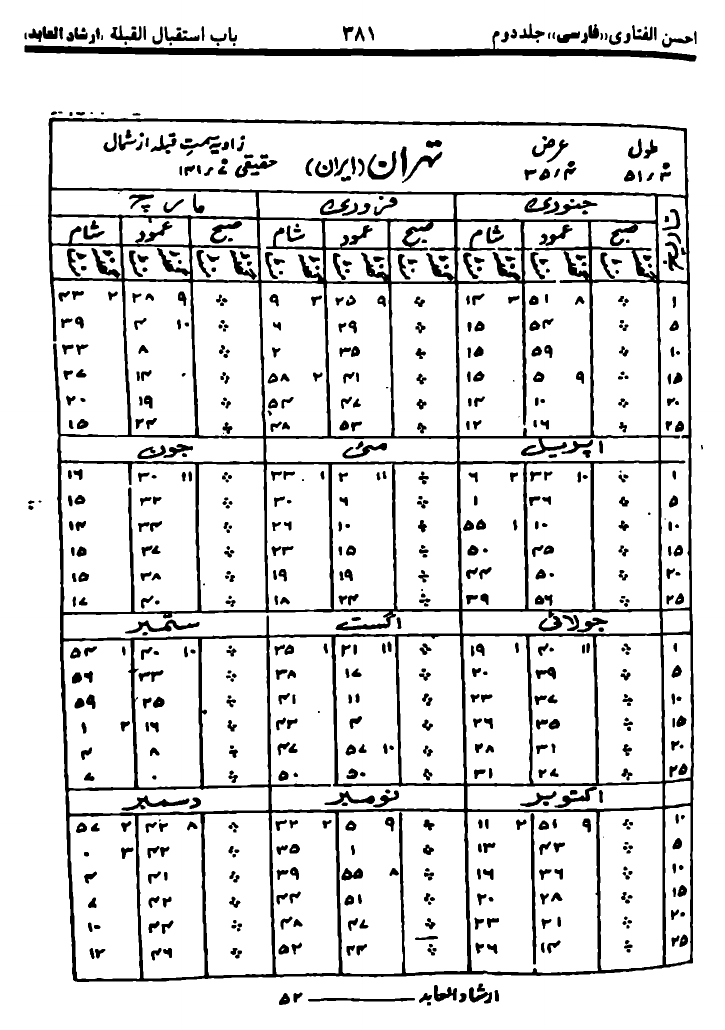 احسن الفتاوی «فارسی» جلد دوم ۳۸۱ باب استقبال القبلة، (ارشاد العابد)
طول عرض تهران (ایران) زاویہ سمت قبلہ از شمال
حقیقی
تاریخ جنوری فروری مارچ
صبح عمود شام صبح عمود شام صبح عمود شام
گھنٹہ منٹ گھنٹہ منٹ گھنٹہ منٹ گھنٹہ منٹ گھنٹہ منٹ گھنٹہ منٹ گھنٹہ منٹ گھنٹہ منٹ گھنٹہ منٹ
۱ ÷ ۸ ۵۱ ۳ ۱۴ ÷ ۹ ۲۵ ۳ ۹ ÷ ۹ ۲۸ ۲ ۴۳
۵ ÷ ۵۴ ۱۵ ÷ ۲۹ ۶ ÷ ۱۰ ۴ ۳۹
۱۰ ÷ ۵۹ ۱۵ ÷ ۳۵ ۲ ÷ ۸ ۳۳
۱۵ ÷ ۹ ۵ ۱۵ ÷ ۴۱ ۲ ۵۸ ÷ ۱۴ ۲۷
۲۰ ÷ ۱۰ ۱۴ ÷ ۴۷ ۵۴ ÷ ۱۹ ۲۰
۲۵ ÷ ۱۶ ۱۲ ÷ ۵۳ ۴۸ ÷ ۲۴ ۱۵
اپریل مئی جون
۱ ÷ ۱۰ ۳۲ ۲ ۶ ÷ ۱۱ ۲ ۱ ۳۳ ÷ ۱۱ ۳۰ ۱۶
۵ ÷ ۳۶ ۱ ÷ ۶ ۳۰ ÷ ۳۲ ۱۵
۱۰ ÷ ۱۰ ۱ ۵۵ ÷ ۱۰ ۲۶ ÷ ۳۴ ۱۴
۱۵ ÷ ۴۵ ۵۰ ÷ ۱۵ ۲۳ ÷ ۳۷ ۱۵
۲۰ ÷ ۵۰ ۴۴ ÷ ۱۹ ۱۹ ÷ ۳۸ ۱۵
۲۵ ÷ ۵۶ ۳۹ ÷ ۲۴ ۱۸ ÷ ۴۰ ۱۷
جولائی اگست ستمبر
۱ ÷ ۱۱ ۴۰ ۱ ۱۹ ÷ ۱۱ ۲۱ ۱ ۳۵ ÷ ۱۰ ۴۰ ۱ ۵۴
۵ ÷ ۳۹ ۲۰ ÷ ۱۷ ۳۸ ÷ ۳۳ ۵۶
۱۰ ÷ ۳۷ ۲۳ ÷ ۱۱ ۴۱ ÷ ۲۵ ۵۹
۱۵ ÷ ۳۵ ۲۶ ÷ ۴ ۴۳ ÷ ۱۶ ۲ ۱
۲۰ ÷ ۳۱ ۲۸ ÷ ۱۰ ۵۷ ۴۷ ÷ ۸ ۴
۲۵ ÷ ۲۷ ۳۱ ÷ ۵۰ ۵۰ ÷ ۰ ۷
اکتوبر نومبر دسمبر
۱۰ ÷ ۹ ۵۱ ۲ ۱۱ ÷ ۹ ۵ ۲ ۳۲ ÷ ۸ ۴۲ ۲ ۵۷
۵ ÷ ۴۳ ۱۳ ÷ ۱ ۳۵ ÷ ۴۲ ۳ ۰
۱۰ ÷ ۳۶ ۱۶ ÷ ۸ ۵۵ ۳۹ ÷ ۴۱ ۴
۱۵ ÷ ۲۸ ۲۰ ÷ ۵۱ ۴۴ ÷ ۴۲ ۷
۲۰ ÷ ۲۱ ۲۳ ÷ ۴۷ ۴۸ ÷ ۴۴ ۱۰
۲۵ ÷ ۱۴ ۲۶ ÷ ۴۴ ۵۲ ÷ ۴۶ ۱۲
ارشاد العابد ــــــ ۵۲